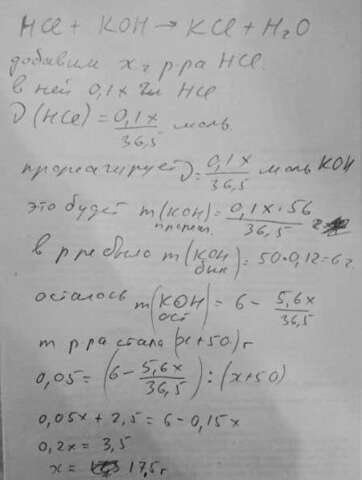 HCl + KOH → KCl + H₂O
добавим x г р-ра HCl.
в ней 0,1x г HCl
ν(HCl) = 0,1x / 36,5 моль
прореагирует ν = 0,1x / 36,5 моль KOH
это будет m(KOH) прореаг. = 0,1x·56 / 36,5 г
в р-ре было m(KOH был) = 50·0,12 = 6 г
осталось m(KOH ост) = 6 - 5,6x / 36,5
m р-ра стала (x+50) г
0,05 = (6 - 5,6x / 36,5) : (x+50)
0,05x + 2,5 = 6 - 0,15x
0,2x = 3,5
x = 17,5 г